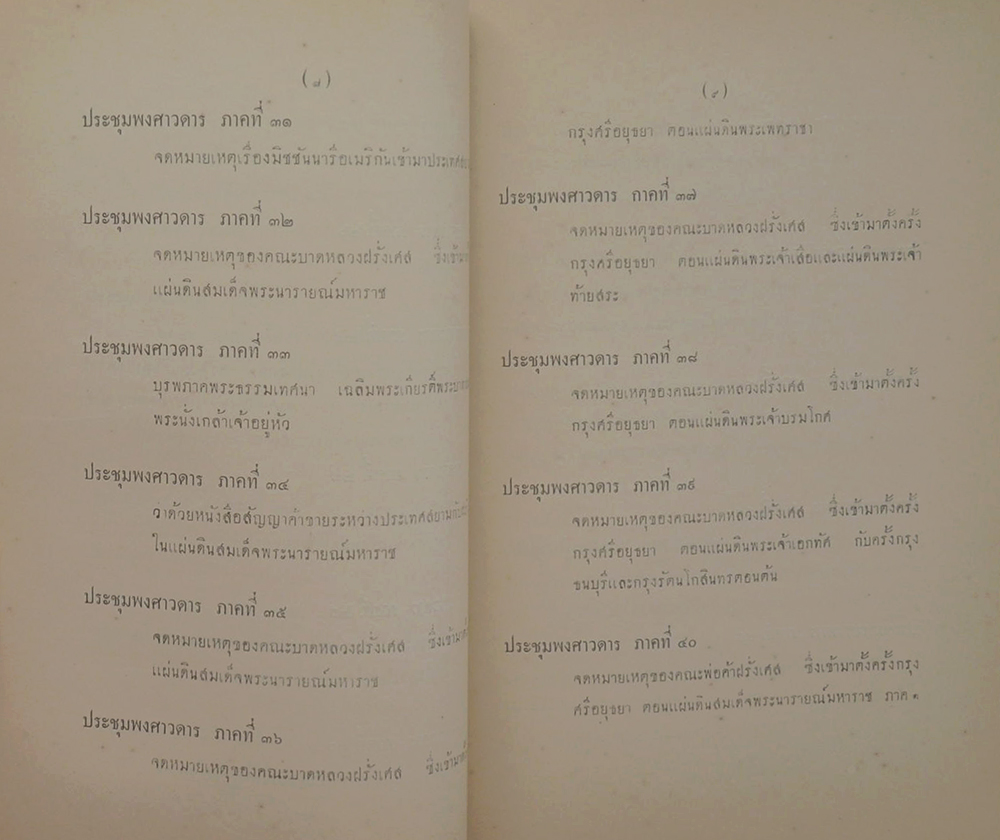 (๘)
ประชุมพงศาวดาร ภาคที่ ๓๑
จดหมายเหตุเรื่องมิชชันนารีอเมริกันเข้ามาประเทศ
ประชุมพงศาวดาร ภาคที่ ๓๒
จดหมายเหตุของคณะบาดหลวงฝรั่งเศส ซึ่งเข้ามา
แผ่นดินสมเด็จพระนารายณ์มหาราช
ประชุมพงศาวดาร ภาคที่ ๓๓
บุรพภาคพระธรรมเทศนา เฉลิมพระเกียรติ์พระบาท
พระนั่งเกล้าเจ้าอยู่หัว
ประชุมพงศาวดาร ภาคที่ ๓๔
ว่าด้วยหนังสือสัญญาค้าขายระหว่างประเทศสยาม
ในแผ่นดินสมเด็จพระนารายณ์มหาราช
ประชุมพงศาวดาร ภาคที่ ๓๕
จดหมายเหตุของคณะบาดหลวงฝรั่งเศส ซึ่งเข้ามา
แผ่นดินสมเด็จพระนารายณ์มหาราช
ประชุมพงศาวดาร ภาคที่ ๓๖
จดหมายเหตุของคณะบาดหลวงฝรั่งเศส ซึ่งเข้ามา
(๙)
กรุงศรีอยุธยา ตอนแผ่นดินพระเพทราชา
ประชุมพงศาวดาร ภาคที่ ๓๗
จดหมายเหตุของคณะบาดหลวงฝรั่งเศส ซึ่งเข้ามาตั้งครั้ง
กรุงศรีอยุธยา ตอนแผ่นดินพระเจ้าเสือและแผ่นดินพระเจ้า
ท้ายสระ
ประชุมพงศาวดาร ภาคที่ ๓๘
จดหมายเหตุของคณะบาดหลวงฝรั่งเศส ซึ่งเข้ามาตั้งครั้ง
กรุงศรีอยุธยา ตอนแผ่นดินพระเจ้าบรมโกศ
ประชุมพงศาวดาร ภาคที่ ๓๙
จดหมายเหตุของคณะบาดหลวงฝรั่งเศส ซึ่งเข้ามาตั้งครั้ง
กรุงศรีอยุธยา ตอนแผ่นดินพระเจ้าเอกทัศ กับครั้งกรุง
ธนบุรีและกรุงรัตนโกสินทรตอนต้น
ประชุมพงศาวดาร ภาคที่ ๔๐
จดหมายเหตุของคณะพ่อค้าฝรั่งเศส ซึ่งเข้ามาตั้งครั้งกรุง
ศรีอยุธยา ตอนแผ่นดินสมเด็จพระนารายณ์มหาราช ภาค ๑